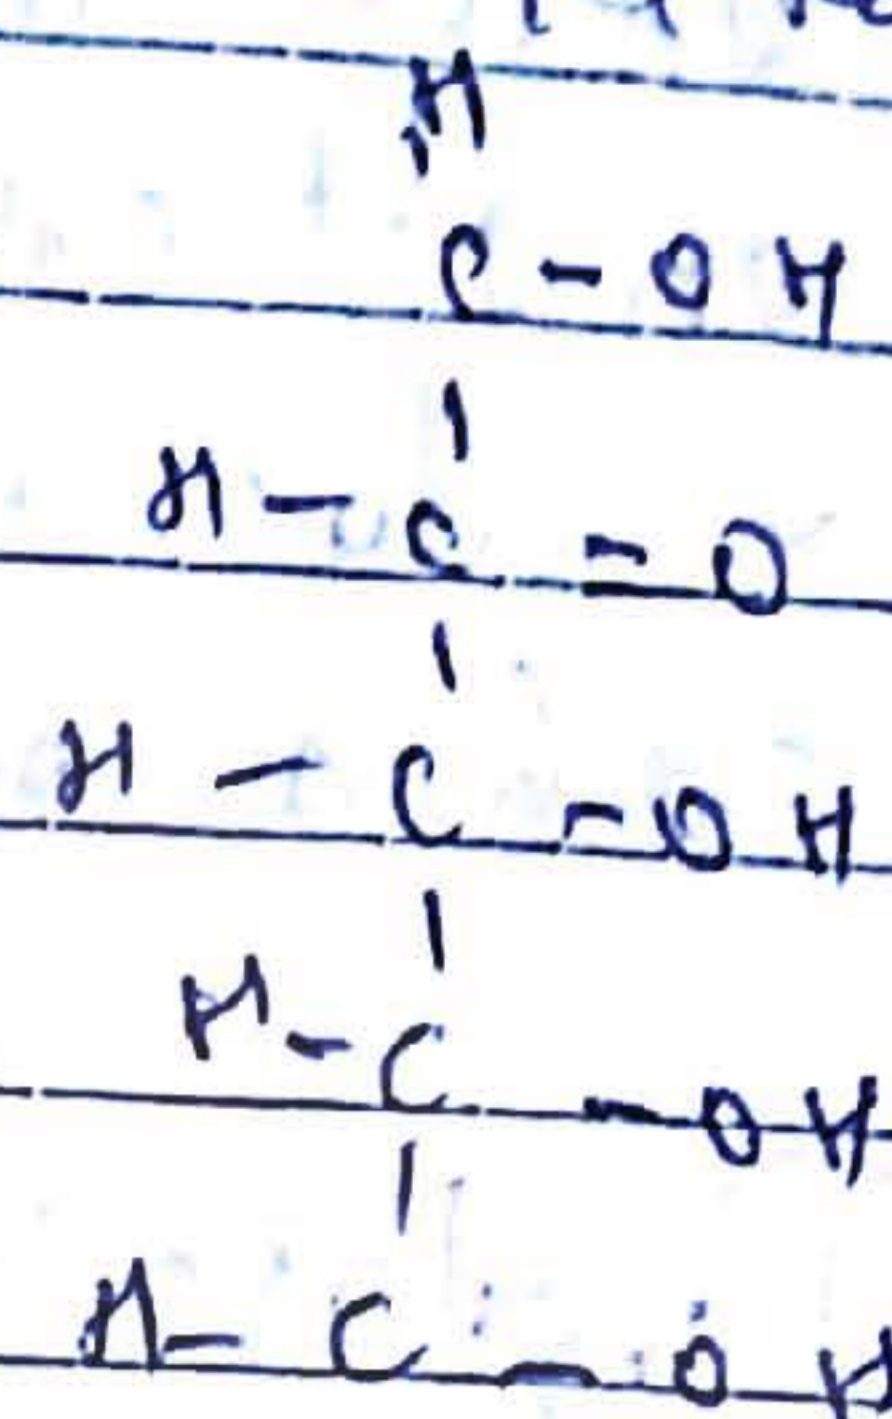 H
C - OH
|
H - C = O
|
H - C - OH
|
H - C - OH
|
H - C - OH